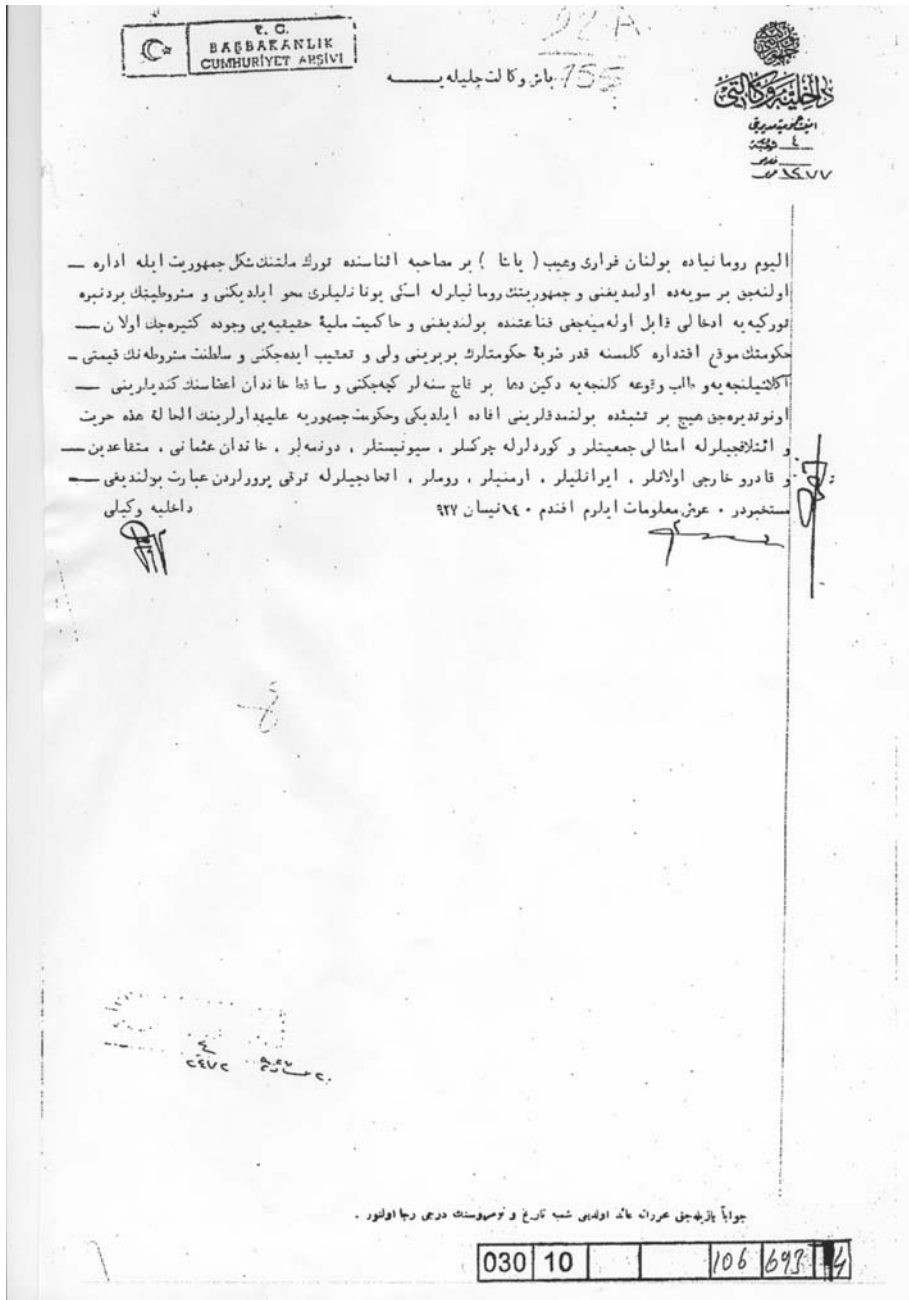 T. C.
BAŞBAKANLIK
CUMHURİYET ARŞİVİ
22 A
155
باش وكالت جليله يه
داخليه وكالتى
امنيت عموميه مديريتى
٤ شعبه
١٤٧٧
اليوم رومانياده بولنان فرارى وهيب ( پاشا ) بر مصاحبه اثناسنده تورك ملتنك شكل جمهوريت ايله اداره
اولنه جق بر سويه ده اولمديغنى و جمهوريتك رومانيلرله اسكى يونانليلرى محو ايلديكنى و مشروطيتك بردنبره
توركيه يه ادخالى قابل اوله ميه جغى قناعتنده بولنديغنى و حاكميت مليۀ حقيقيه يى وجوده كتيره جك اولان
حكومتك موقع اقتداره كلمسنه قدر ضربۀ حكومتلرك بربرينى ولى و تعقيب ايده جكنى و سلطنت مشروطه نك قيمتى
آكلاشيلنجه يه و طلب وقوعه كلنجه يه دكين دها بر قاچ سنه لر كچه جكنى و ساقط خاندان اعضاسنك كنديلرينى
اونوتديره جق هيچ بر تشبثده بولنمدقلرينى افاده ايلديكى و حكومت جمهوريه عليهدارلرينك الحالة هذه حريت
و ائتلافجيلرله امثالى جمعيتلر و كوردلرله چركسلر ، سيونيستلر ، دونمه لر ، خاندان عثمانى ، متقاعدين
و قادرو خارجى اولانلر ، ايرانليلر ، ارمنيلر ، روملر ، اتحادجيلرله ترقى پرورلردن عبارت بولنديغى
مستخبردر ٠ عرض معلومات ايلرم افندم ٠ ١٤ نيسان ٩٢٧
داخليه وكيلى
٤
٢٤٧٢
جواباً يازيله جق محرراته عائد اولديغى شعبه تاريخ و نومروسنك درجى رجا اولنور .
030 10 106 693 4